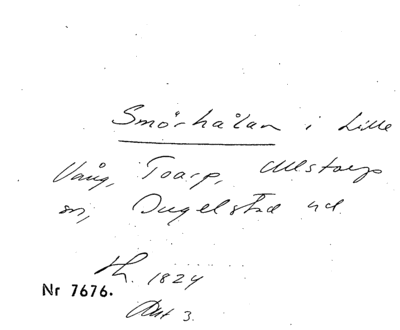 Smörhålan i Lille
Vång, Toarp, Ullstorps
sn, Ingelstad hd.
Lh. 1824
Nr 7676.
Akt 3.